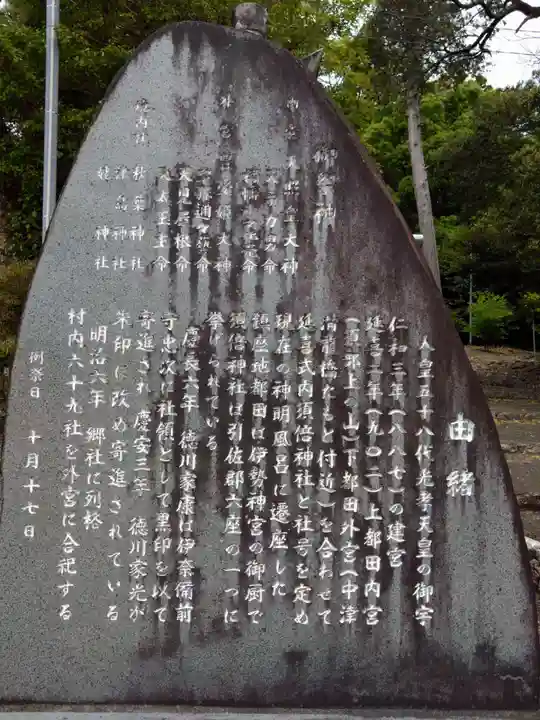 由緒
人皇五十八代光孝天皇の御宇
仁和三年(八八七)の建宮
延喜二年(九〇二)上都田内宮
下都田外宮(中津
付近)を合わせて
延喜式内須倍神社と社号を定め
現在の神明風呂に遷座した
鎮座地都田は伊勢神宮の御厨で
須倍神社は引佐郡六座の一つに
挙げられている
慶長六年 徳川家康は伊奈備前
守忠次に社領として黒印を以て
寄進され 慶安三年 徳川家光が
朱印に改め寄進されている
明治六年 郷社に列格
村内六十九社を外宮に合祀する
例祭日 十月十七日
御祭神
大神
外宮 大神
天児屋根命
太玉主命
境内社 秋葉神社
津島神社
神社